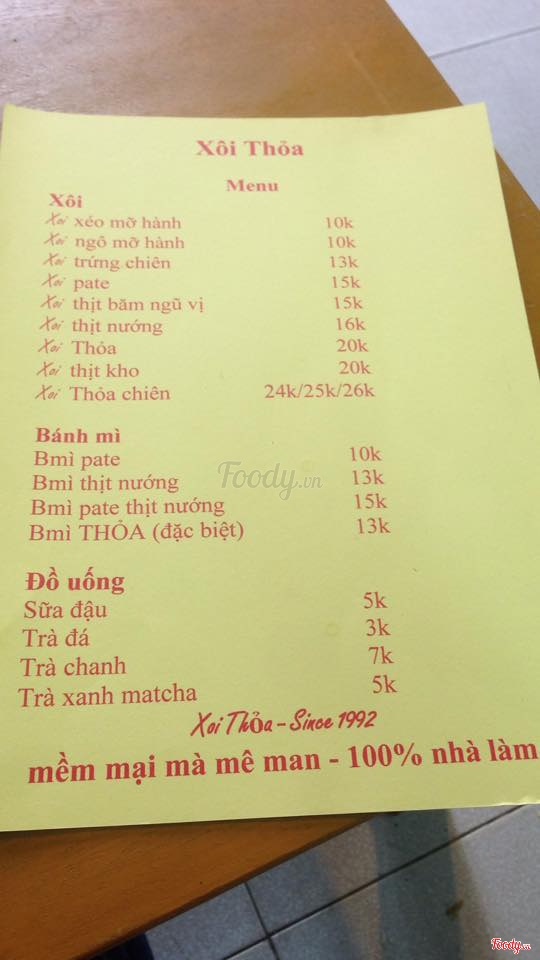 Xôi Thỏa
Menu
Xôi
Xoi xéo mỡ hành 10k
Xoi ngô mỡ hành 10k
Xoi trứng chiên 13k
Xoi pate 15k
Xoi thịt băm ngũ vị 15k
Xoi thịt nướng 16k
Xoi Thỏa 20k
Xoi thịt kho 20k
Xoi Thỏa chiên 24k/25k/26k
Bánh mì
Bmì pate 10k
Bmì thịt nướng 13k
Bmì pate thịt nướng 15k
Bmì THỎA (đặc biệt) 13k
Foody.vn
Đồ uống
Sữa đậu 5k
Trà đá 3k
Trà chanh 7k
Trà xanh matcha 5k
Xoi Thỏa - Since 1992
mềm mại mà mê man - 100% nhà làm
Foody.vn